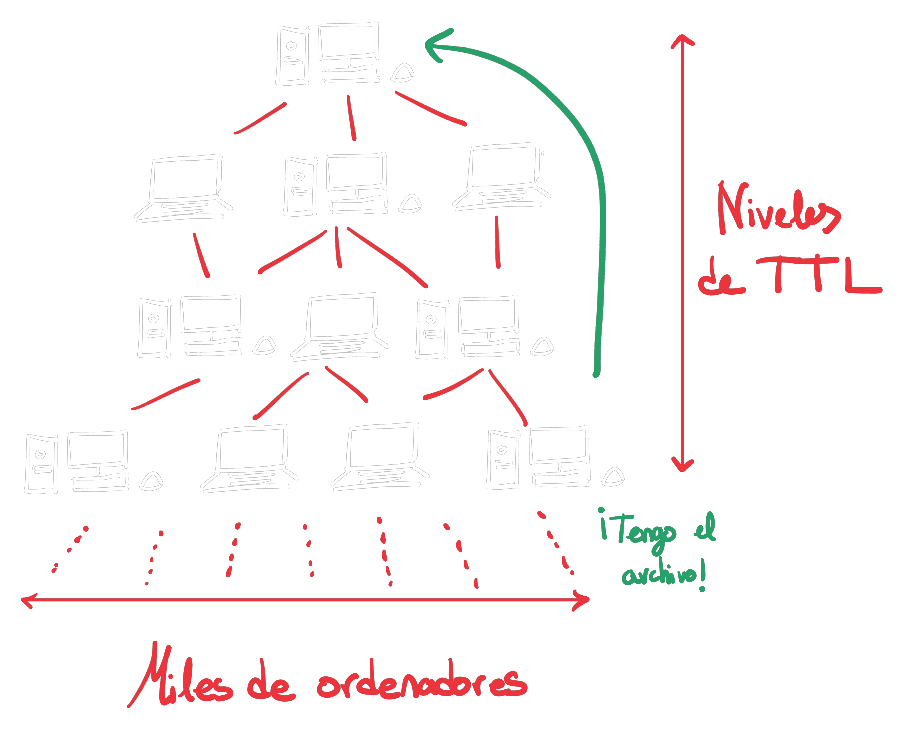 Niveles
de TTL
¡Tengo el
archivo!
Miles de ordenadores